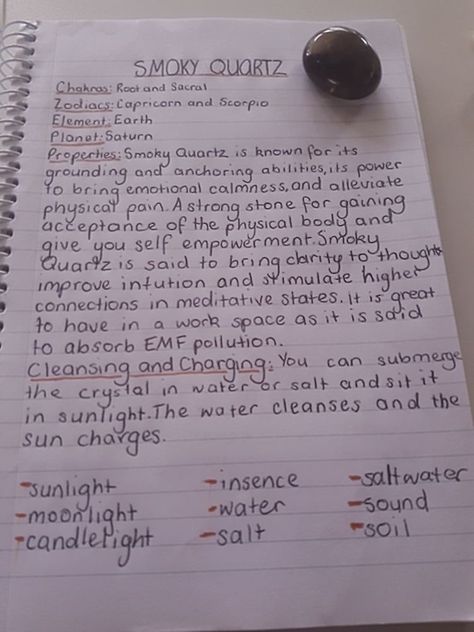 SMOKY QUARTZ
Chakras: Root and Sacral
Zodiacs: Capricorn and Scorpio
Element: Earth
Planet: Saturn
Properties: Smoky Quartz is known for its
grounding and anchoring abilities, its power
to bring emotional calmness, and alleviate
physical pain. A strong stone for gaining
acceptance of the physical body and
give you self empowerment. Smoky
Quartz is said to bring clarity to thoughts
improve intution and stimulate higher
connections in meditative states. It is great
to have in a work space as it is said
to absorb EMF pollution.
Cleansing and Charging: You can submerge
the crystal in water or salt and sit it
in sunlight. The water cleanses and the
sun charges.
-sunlight -insence -saltwater
-moonlight -water -sound
-candlelight -salt -soil